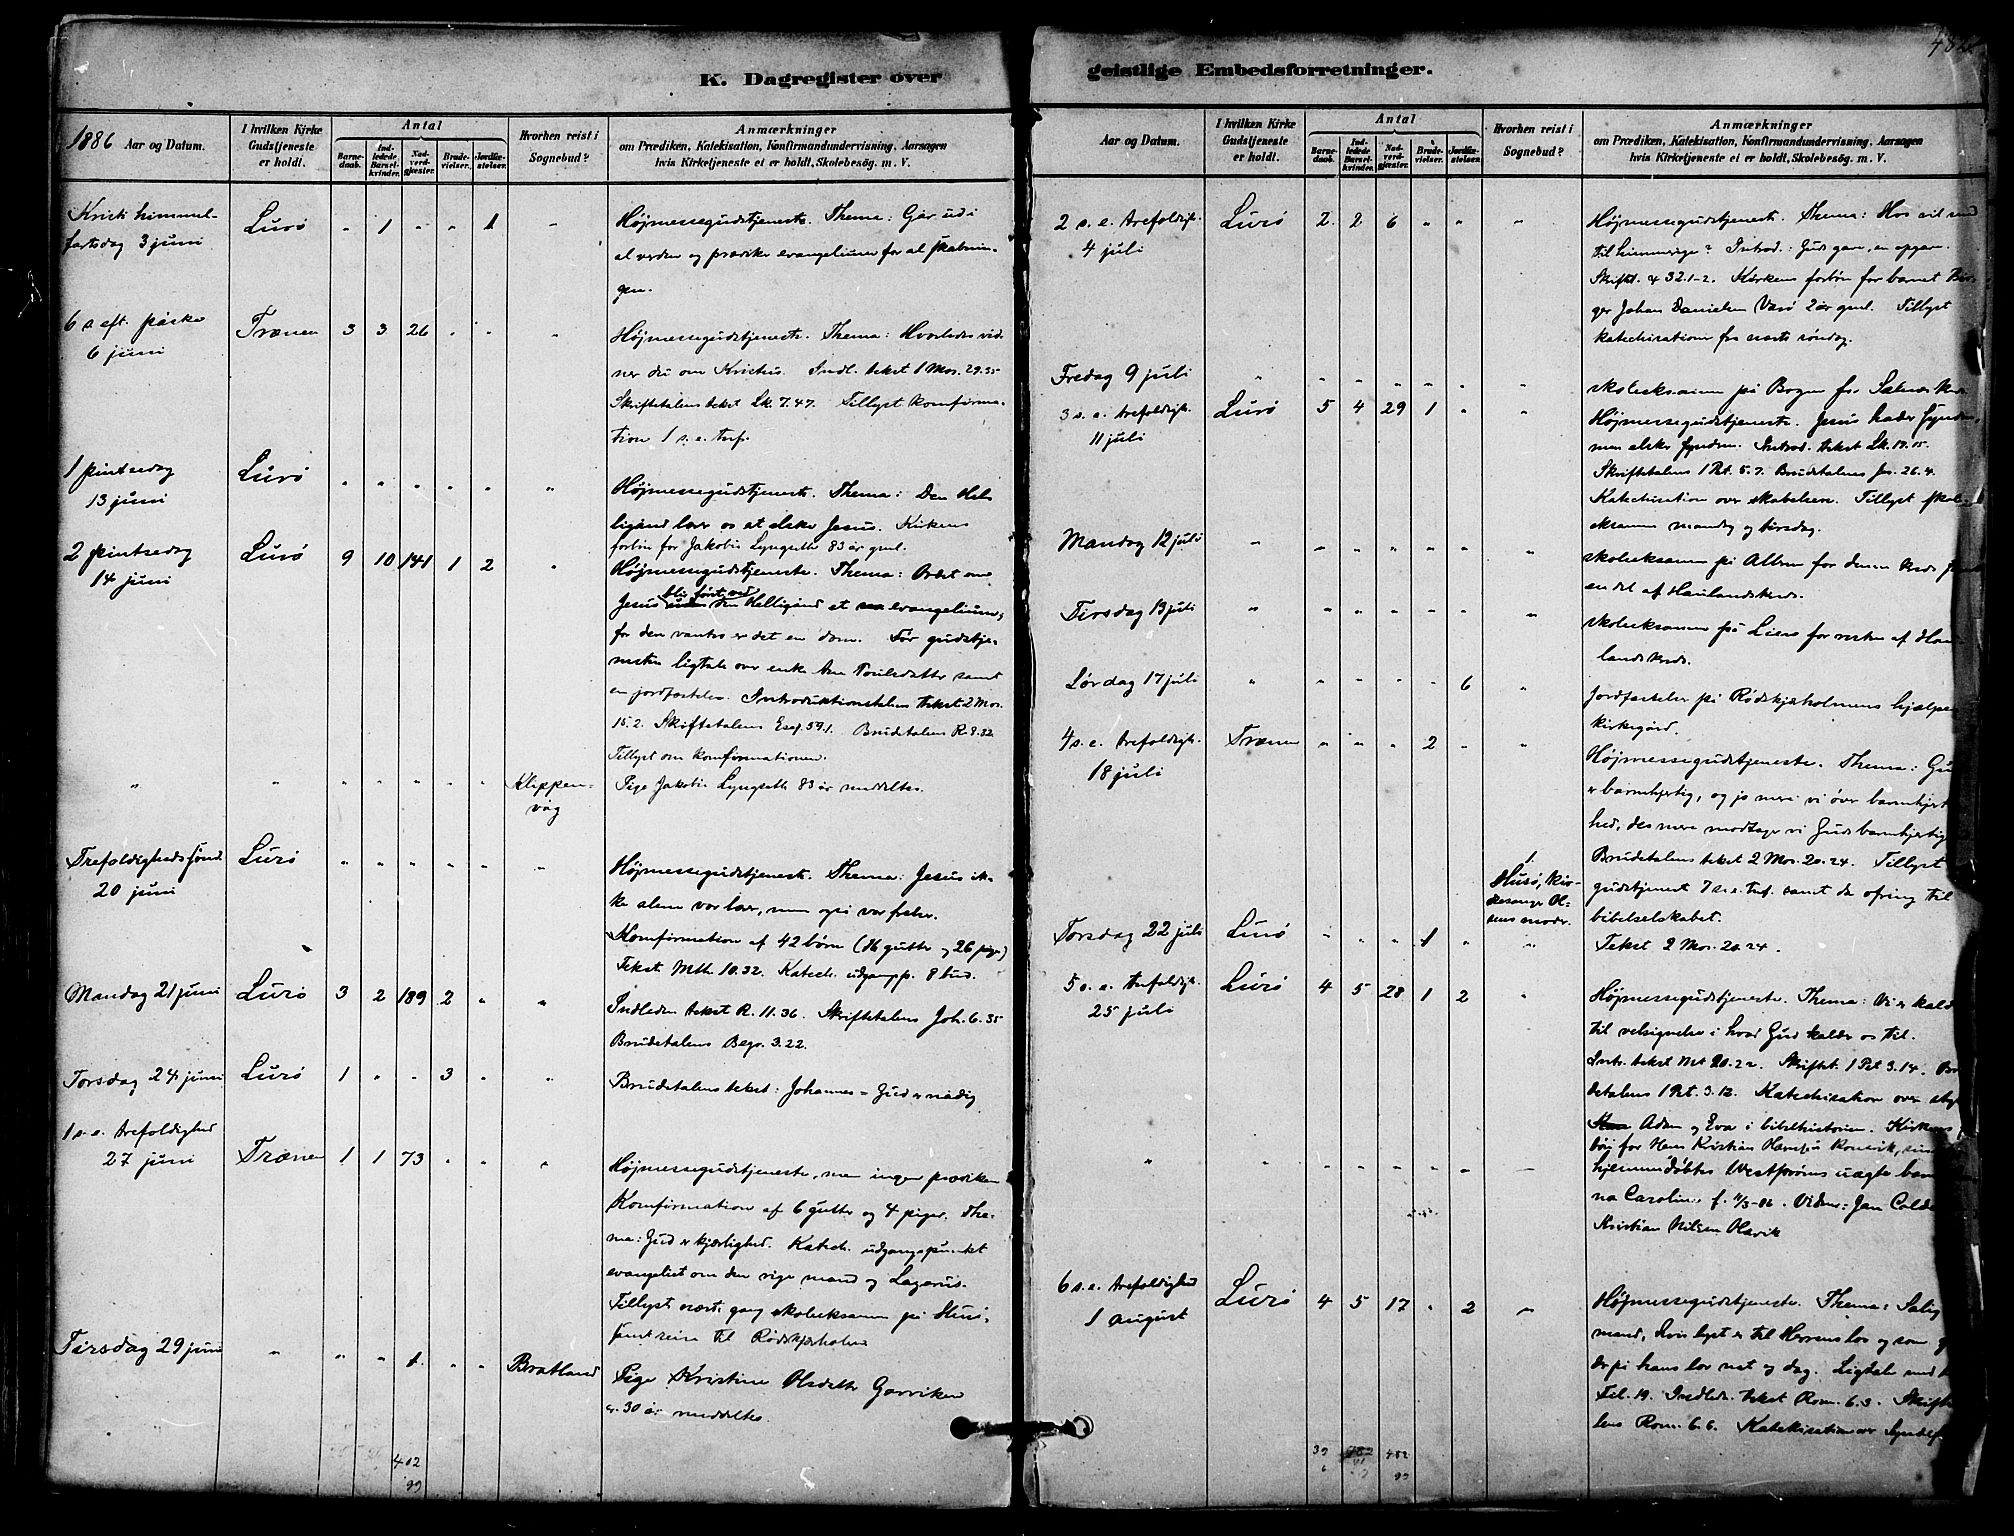 K. Dagregister over
1886 Aar og Datum.
I hvilken Kirke Gudstjeneste er holdt.
Antal
Barnedaab.
Indledede Barselkvinder.
Nadverdgjæster.
Brudevielser.
Jordfæstelser.
Hvorhen reist i Sognebud?
Anmærkninger
om Prædiken, Katekisation, Konfirmandundervisning, Aarsagen
hvis Kirketjeneste ei er holdt, Skolebesøg. m. V.
Kristi himmel- Lurø " 1 " " 1 " Højmessegudstjeneste. Thema: Går ud i
fartsdag 3 juni al verden og prædiker evangelium for al skabnin-
gen.
6 s. eft. påske Trænen 3 3 26 " " " Højmessegudstjeneste. Thema: Hvorledes vid-
6 juni ner du om Kristus. Indl. tekst 1 Mos. 29.35
Skriftetalens tekst Lk. 7.47. Tillyst konfirma-
tion 1 s. e. tref.
1 pintsedag Lurø " " " " " " Højmessegudstjeneste. Thema: Den Hel-
13 juni ligånd lærer os at elske Jesus. Kirkens
forbøn for Jakobia Lyngseth 83 år gml.
2 pintsedag Lurø 9 10 141 1 2 " Højmessegudstjeneste. Thema: Ordet om
14 juni Jesus blir først ved den Helligånd et evangelium;
for den vantro er det en dom. Før gudstje-
nesten ligtale over enke samt
en jordfæstelse. Introduktionstalens tekst 2 Mos.
15.2. Skriftetalens Esaj. 59.1. Brudetalens R. 8.32
Tillyst om konfirmationen.
" " " " " " " Klippen- Pige Jakobia Lyngseth 83 år meddeltes.
våg
Trefoldigheds sønd. Lurø " " " " " " Højmessegudstjeneste. Thema: Jesus ik-
20 juni ke alene vor lærer, men også vor frelser.
Konfirmation af 42 børn (16 gutter og 26 piger)
Tekst Mth. 10.32. Katech. udgangsp. 8 bud.
Mandag 21 juni Lurø 3 2 189 2 " " Indledn. tekst R. 11.36. Skriftetalens Joh. 6.35
Brudetalens Begr. 3.22.
Torsdag 24 juni Lurø 1 " " 3 " " Brudetalens tekst: Johannes = Gud er nådig
1 s. e. trefoldighed
27 juni Trænen 1 1 73 " " " Højmessegudstjeneste, men ingen prædiken
Konfirmation af 6 gutter og 4 piger. The-
ma: Gud er kjærlighed. Katech. udgangspunktet
evangeliet om den rige mand og Lazarus.
Tillyst næste gang skoleeksamen på Husø,
samt reise til Rødskjærholmen
Tirsdag 29 juni " " " 1. " " Bratland Pige Kristine Olsdatter Garviken
30 år meddeltes.
402
99
geistlige Embedsforretninger.
Aar og Datum.
I hvilken Kirke Gudstjeneste er holdt.
Antal
Barnedaab.
Indledede Barselkvinder.
Nadverdgjæster.
Brudevielser.
Jordfæstelser.
Hvorhen reist i Sognebud?
Anmærkninger
om Prædiken, Katekisation, Konfirmandundervisning, Aarsagen
hvis Kirketjeneste ei er holdt, Skolebesøg. m. V.
2 s. e. trefoldigh. Lurø 2 2 6 " " " Højmessegudstjeneste. Thema: Hvo vil med
4 juli til himmerige? Introd.: Guds gave, en opgave.
Skriftet. 32.1-2. Kirkens forbøn for barnet Bir-
ger Johan Danielsen Værø 2 år gml. Tillyst
katechisation fra næste søndag.
Fredag 9 juli " " " " " " " skoleeksamen på Bogen for
3 s. e. trefoldigh. Lurø 5 4 29 1 " Højmessegudstjeneste. Jesus hader synden,
11 juli men elsker synderen. Introd. tekst Lk. 19.
Skriftetalens 1 Pet. 5.7. Brudetalens Jes. 26.4.
Katechisation over skabelsen. Tillyst skole-
eksamen mandag og tirsdag.
Mandag 12 juli " " " " " " " skoleeksamen på for denne kreds
en del af Haulandskreds.
Tirsdag 13 juli " " " " " " " skoleeksamen på for resten af Hau-
landskreds.
Lørdag 17 juli " " " " " 6 " Jordfæstelse på Rødskjærholmens hjælpe-
kirkegård.
4 s. e. trefoldigh. Trænen " " " 2 " " Højmessegudstjeneste. Thema: Gud
18 juli er barmhjertig, og jo mere vi øver barmhjert
hed, des mere modtager vi Guds barmhjertig
1. Husø, kir-
kesanger Ol-
sens moder.
Brudetalens tekst 2 Mos. 20.24. Tillyst
gudstjeneste 7 s. e. tref. samt da ofring til
bibelselskabet.
Torsdag 22 juli Lurø " " " 1 " " Tekst 2 Mos. 20.24.
5 s. e. trefoldigh. Lurø 4 5 28 1 2 " Højmessegudstjeneste. Thema: Vi er kald
25 juli til velsignelse i hvad Gud kalder os til.
Intr. tekst Mt. 20.22. Skriftet. 1 Pet 3.14. Bru
detalens 1 Pet. 3.12. Katechisation over
Adam og Eva i bibelhistorien. Kirkens
bøn for Hans Kristian Hansen
" " " " " " " hjemmedøbtes uægte barn
na Caroline f. 11/3-86. Vidner: Jan
Kristian Nilsen Olsvik
6 s. e. trefoldighed Lurø 4 5 17 " 2 " Højmessegudstjeneste. Thema: Salig
1 august mand, hvis lyst er til Herrens lov og som
der på hans lov nat og dag. Ligtale
Fil. 19. Indledn. tekst Rom. 6.3. Skrifte
lens Rom. 6.6. Katekisation over Syndefa
39
482
99